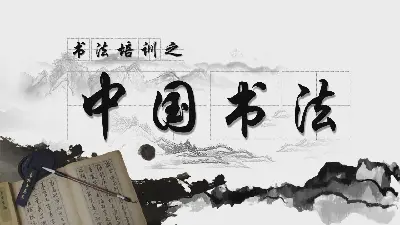 书法培训之
中国书法